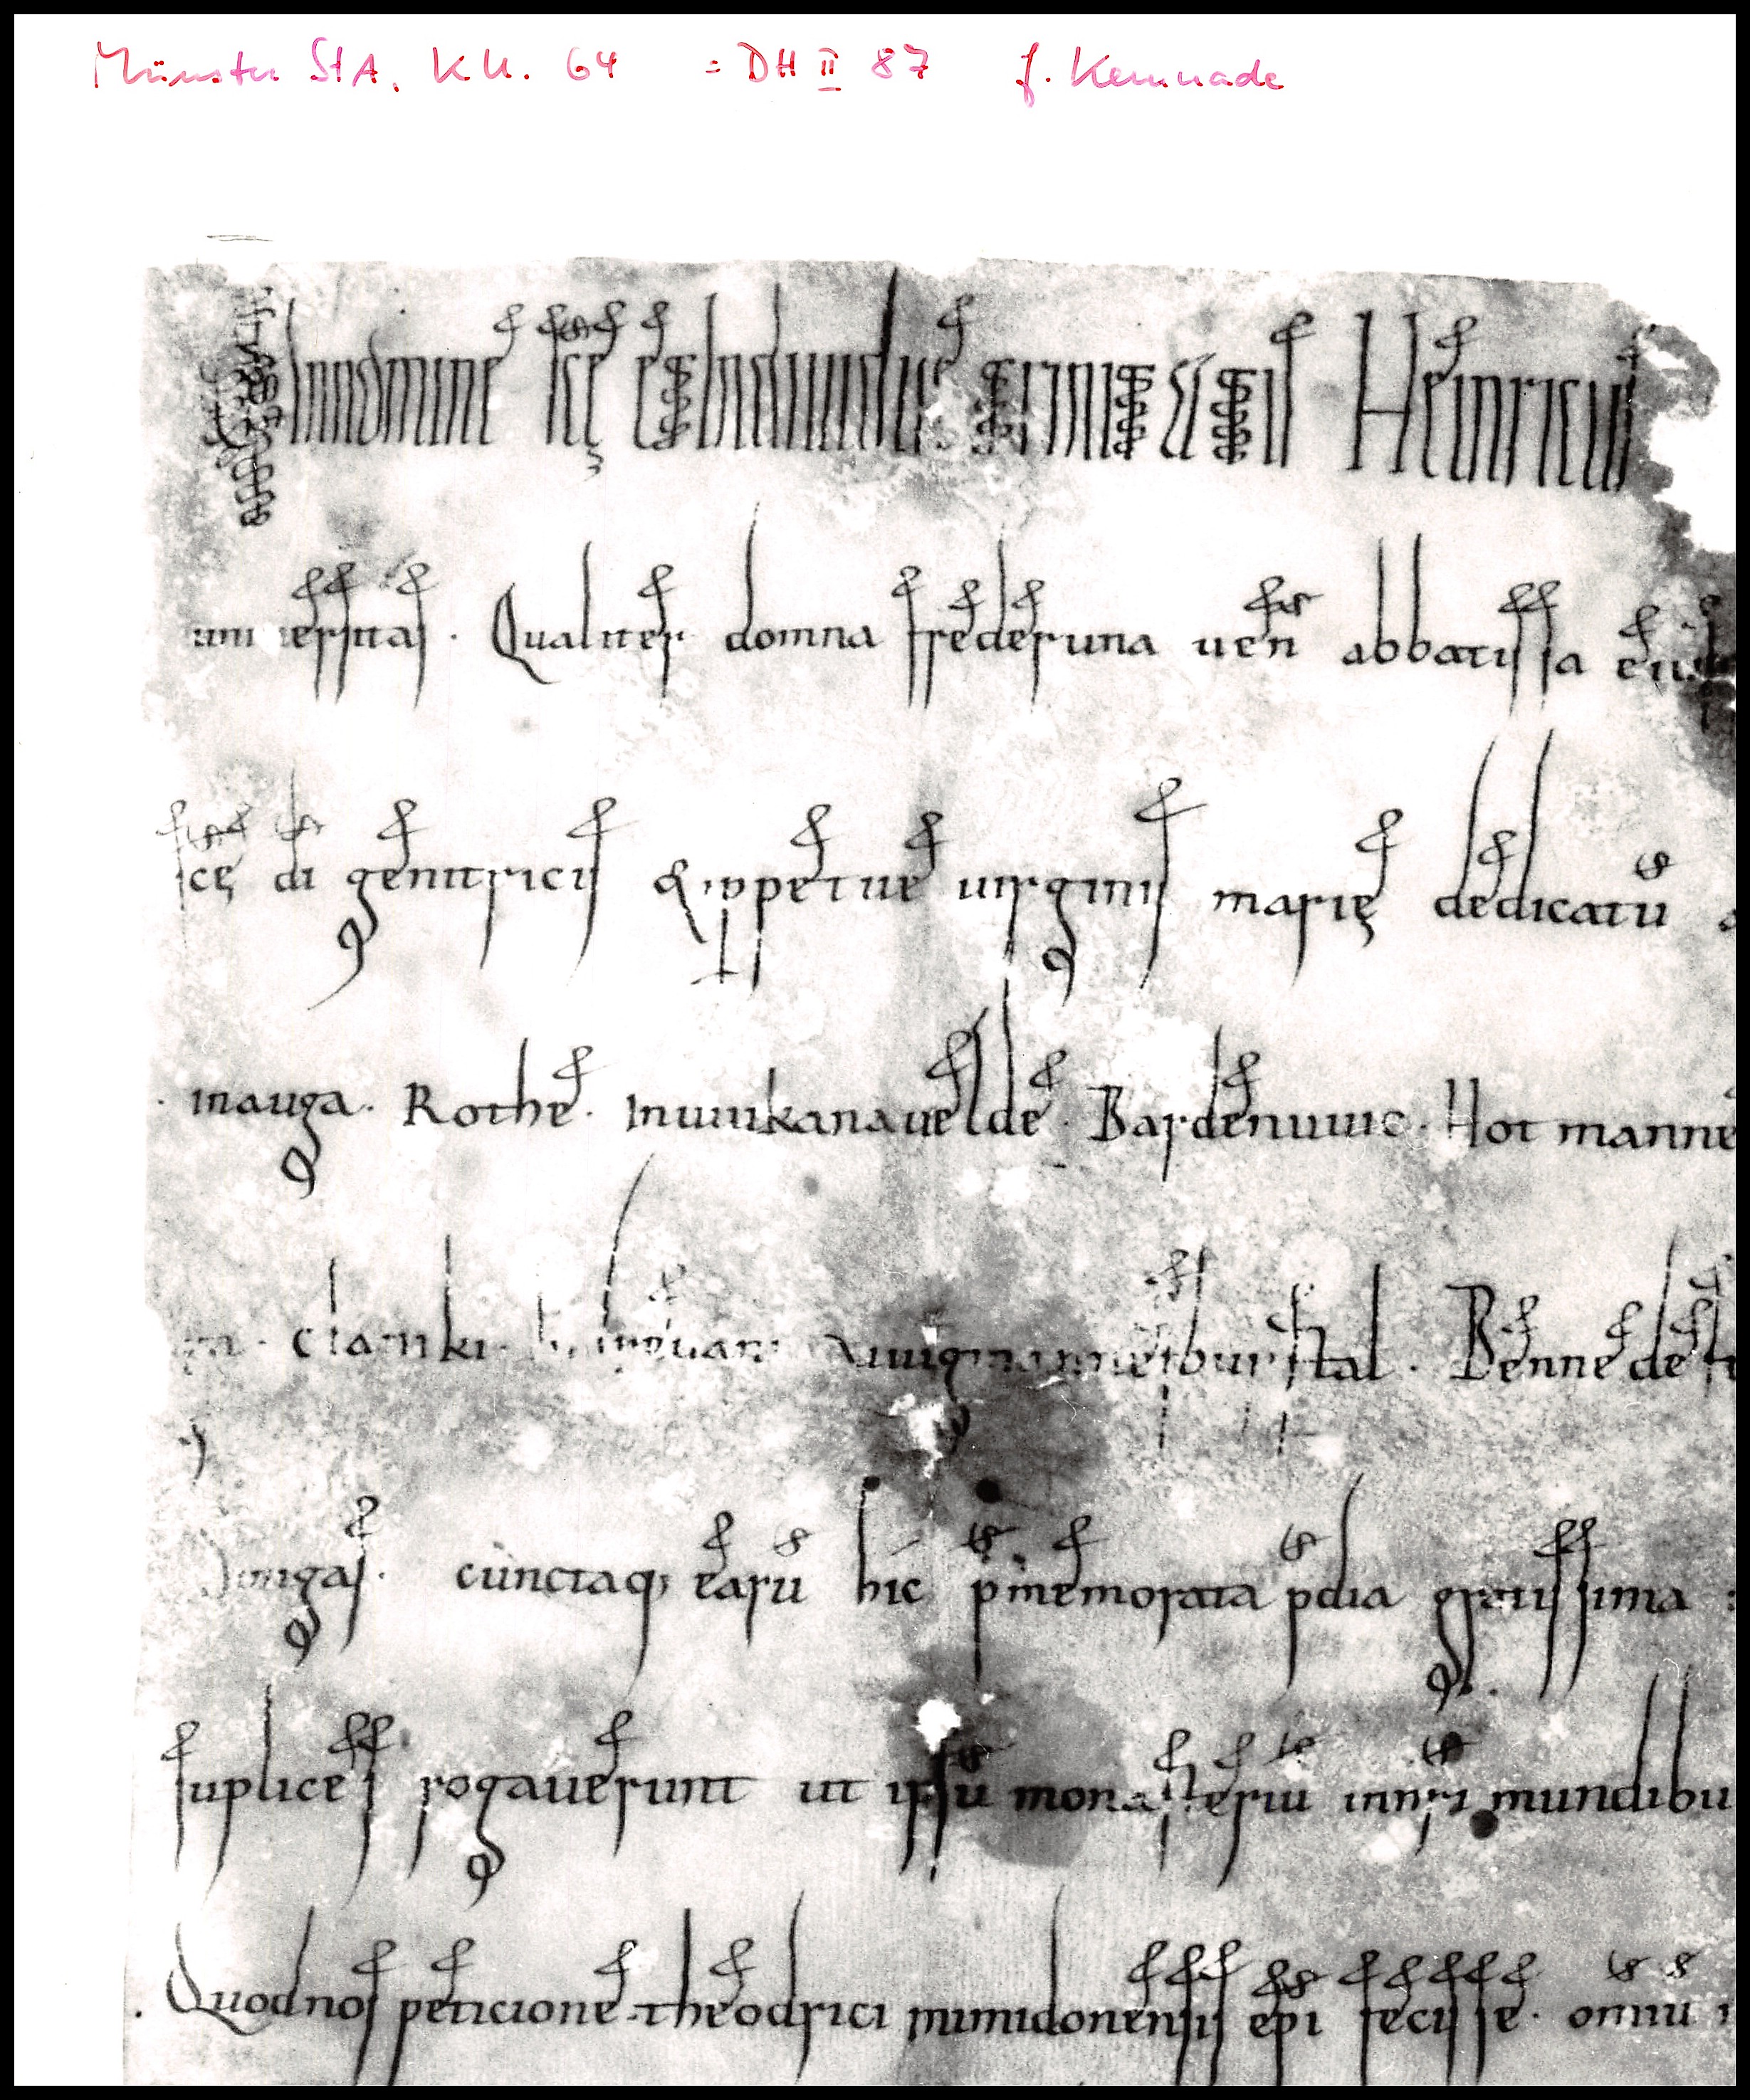 Münster StA, KU. 64 = DH II 87 f. Kemnade
In nomine scę et indiuidue trinitatis Heinricus
uniuersitas . Qualiter domna frederuna uen abbatissa eius
scę di genitricis & ppetue uirginis marię dedicatū
inauga . Rothe . Inuuikanauelde . Bardenuuic . Hotmanne
Auuigmannesburstal . Bennedest
cunctaq; earū hic pmemorata pdia gratissima
suplices rogauerunt ut ipsū monasteriū innrī mundibu
. Quod nos peticione theodrici mimidonensis epi fecisse . omniū